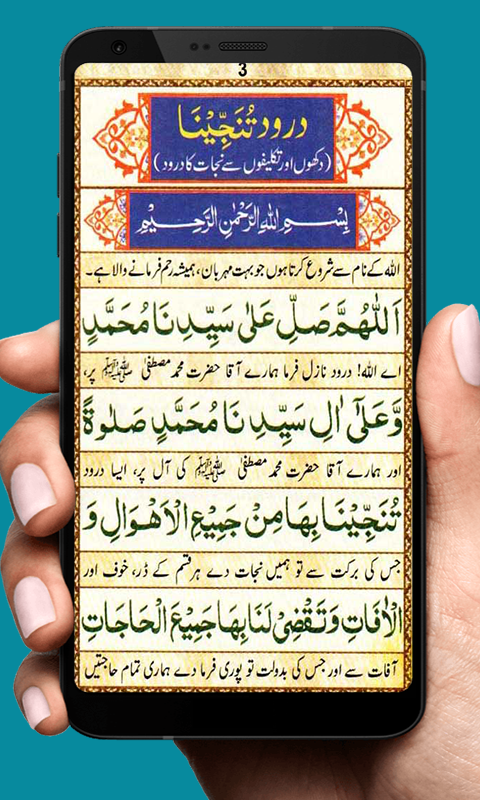 3
درود تُنَجِّيْنَا
(دکھوں اور تکلیفوں سے نجات کا درود)
بِسْمِ اللّٰهِ الرَّحْمٰنِ الرَّحِيْمِ
اللہ کے نام سے شروع کرتا ہوں جو بہت مہربان، ہمیشہ رحم فرمانے والا ہے۔
اَللّٰهُمَّ صَلِّ عَلٰى سَيِّدِنَا مُحَمَّدٍ
اے اللہ! درود نازل فرما ہمارے آقا حضرت محمد مصطفیٰ ﷺ پر،
وَّعَلٰٓى اٰلِ سَيِّدِنَا مُحَمَّدٍ صَلٰوةً
اور ہمارے آقا حضرت محمد مصطفیٰ ﷺ کی آل پر، ایسا درود
تُنَجِّيْنَا بِهَا مِنْ جَمِيْعِ الْاَهْوَالِ وَ
جس کی برکت سے تو ہمیں نجات دے ہر قسم کے ڈر، خوف اور
الْاٰفَاتِ وَتَقْضِىْ لَنَا بِهَا جَمِيْعَ الْحَاجَاتِ
آفات سے اور جس کی بدولت تو پوری فرما دے ہماری تمام حاجتیں